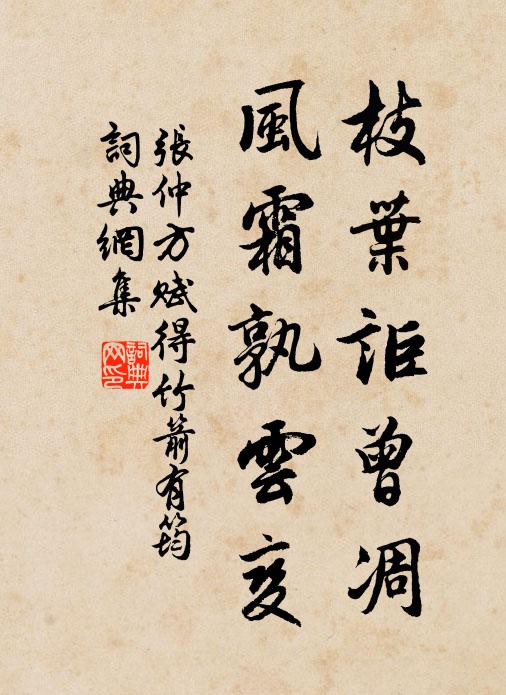 枝葉詎曾凋
風霜孰雲變
張仲方賦得竹箭有筠
詞典網集
詞典網印